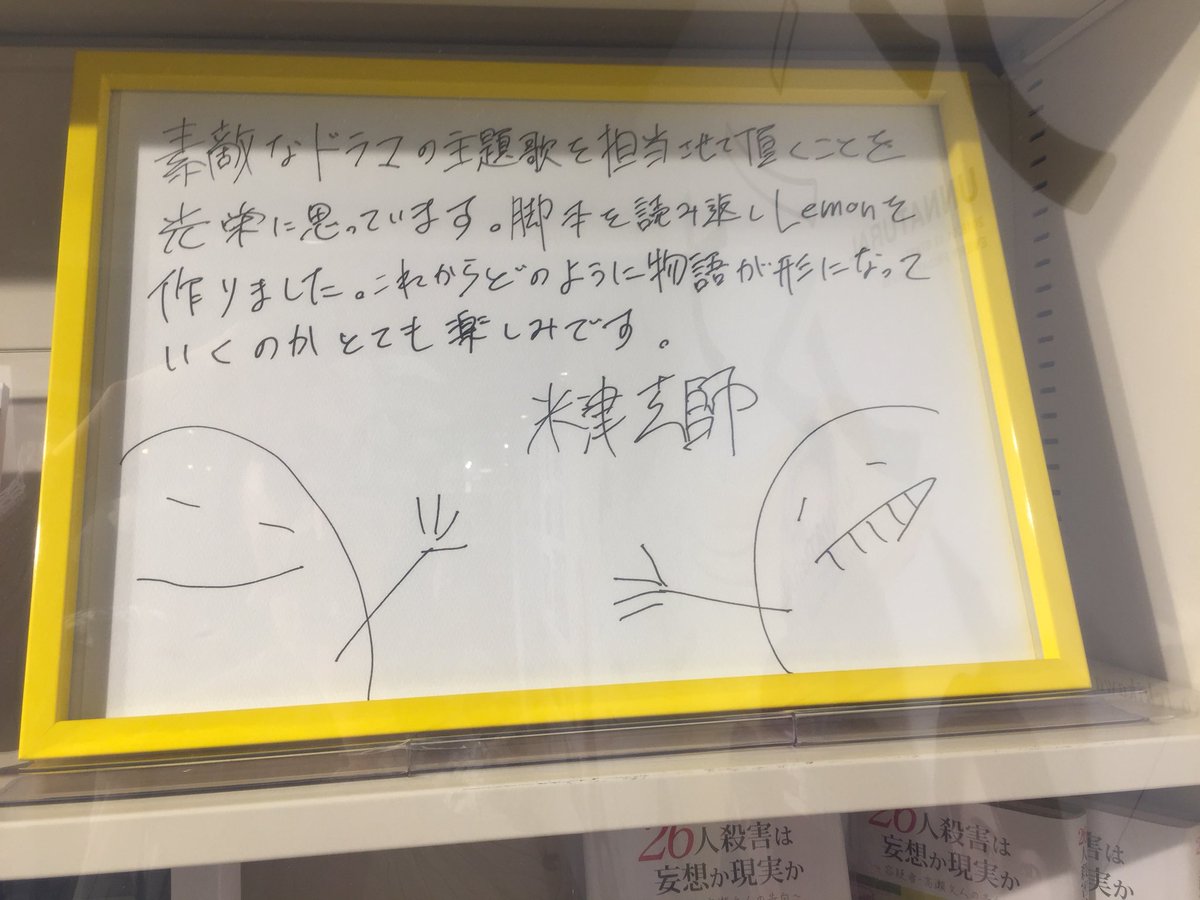 素敵なドラマの主題歌を担当させて頂くことを
光栄に思っています。脚本を読み返しLemonを
作りました。これからどのように物語が形になって
いくのかとても楽しみです。
米津玄師
UNNATURAL
26人殺害は
妄想か現実か
26人殺害は
妄想か現実か
害は
実か